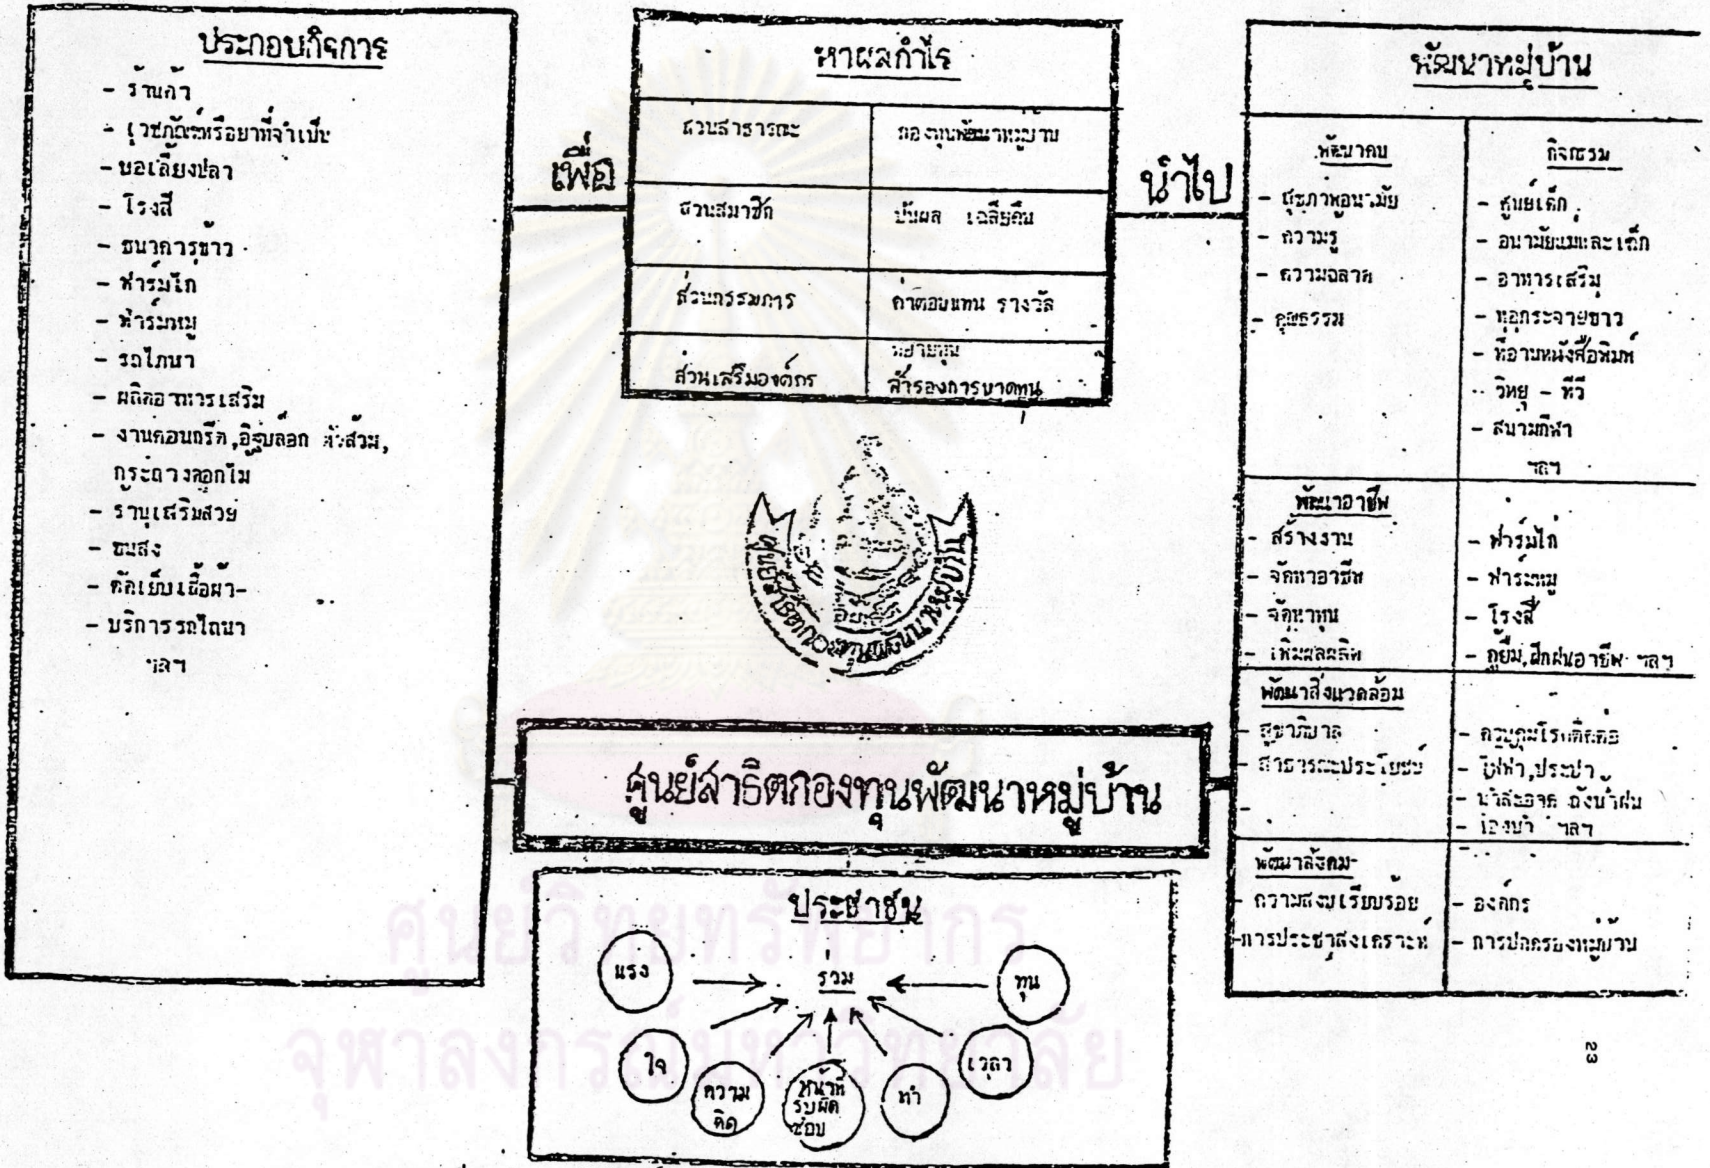 ประกอบกิจการ
- ร้านค้า
- เวชภัณฑ์หรือยาที่จำเป็น
- บ่อเลี้ยงปลา
- โรงสี
- ธนาคารข้าว
- ฟาร์มไก่
- ฟาร์มหมู
- รถไถนา
- ผลิตอาหารเสริม
- งานคอนกรีต,อิฐบล็อก หัวส้วม,
กระถางดอกไม้
- ร้านเสริมสวย
- ขนส่ง
- ตัดเย็บเสื้อผ้า-
- บริการรถไถนา
ฯลฯ
เพื่อ
หาผลกำไร
ส่วนสาธารณะ กองทุนพัฒนาหมู่บ้าน
ส่วนสมาชิก ปันผล เฉลี่ยคืน
ส่วนกรรมการ ค่าตอบแทน รางวัล
ส่วนเสริมองค์กร ขยายทุน
สำรองการขาดทุน
นำไป
พัฒนาหมู่บ้าน
พัฒนาคน กิจกรรม
- สุขภาพอนามัย - ศูนย์เด็ก
- ความรู้ - อนามัยแม่และเด็ก
- ความฉลาด - อาหารเสริม
- คุณธรรม - หอกระจายข่าว
- ที่อ่านหนังสือพิมพ์
- วิทยุ - ทีวี
- สนามกีฬา
ฯลฯ
พัฒนาอาชีพ
- สร้างงาน - ฟาร์มไก่
- จัดหาอาชีพ - ฟาร์มหมู
- จัดหาทุน - โรงสี
- เพิ่มผลผลิต - กู้ยืม,ฝึกฝนอาชีพ ฯลฯ
พัฒนาสิ่งแวดล้อม
- สุขาภิบาล - ควบคุมโรคติดต่อ
- สาธารณะประโยชน์ - ไฟฟ้า,ประปา
- น้ำสะอาด ถังน้ำฝน
- ฯลฯ
พัฒนาสังคม-
- ความสงบเรียบร้อย - องค์กร
- การประชาสงเคราะห์ - การปกครองหมู่บ้าน
ศูนย์สาธิตกองทุนพัฒนาหมู่บ้าน
ศูนย์สาธิตกองทุนพัฒนาหมู่บ้าน
ประชาชน
แรง ร่วม ทุน
ใจ
ความ
คิด
หน้าที่
รับผิด
ชอบ
ทำ
เวลา
23
ศูนย์วิทยทรัพยากร
จุฬาลงกรณ์มหาวิทยาลัย